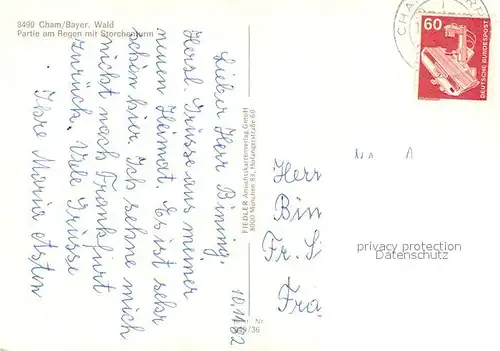 8490 Cham/Bayer. Wald
Partie am Regen mit Storchenturm
Lieber Herr Bining,
Herzl. Grüsse aus meiner
neuen Heimat. Es ist sehr
schön hier. Ich sehne mich
nicht nach Frankfurt
zurück. Viele Grüsse
Ihre Maria
10.11.82
FIEDLER Ansichtskartenverlag GmbH
8000 München 83, Hofangerstraße 60
Nr.
/36
CHA
60
DEUTSCHE BUNDESPOST
Herr
Bin
Fr. S
Fra
privacy protection
Datenschutz